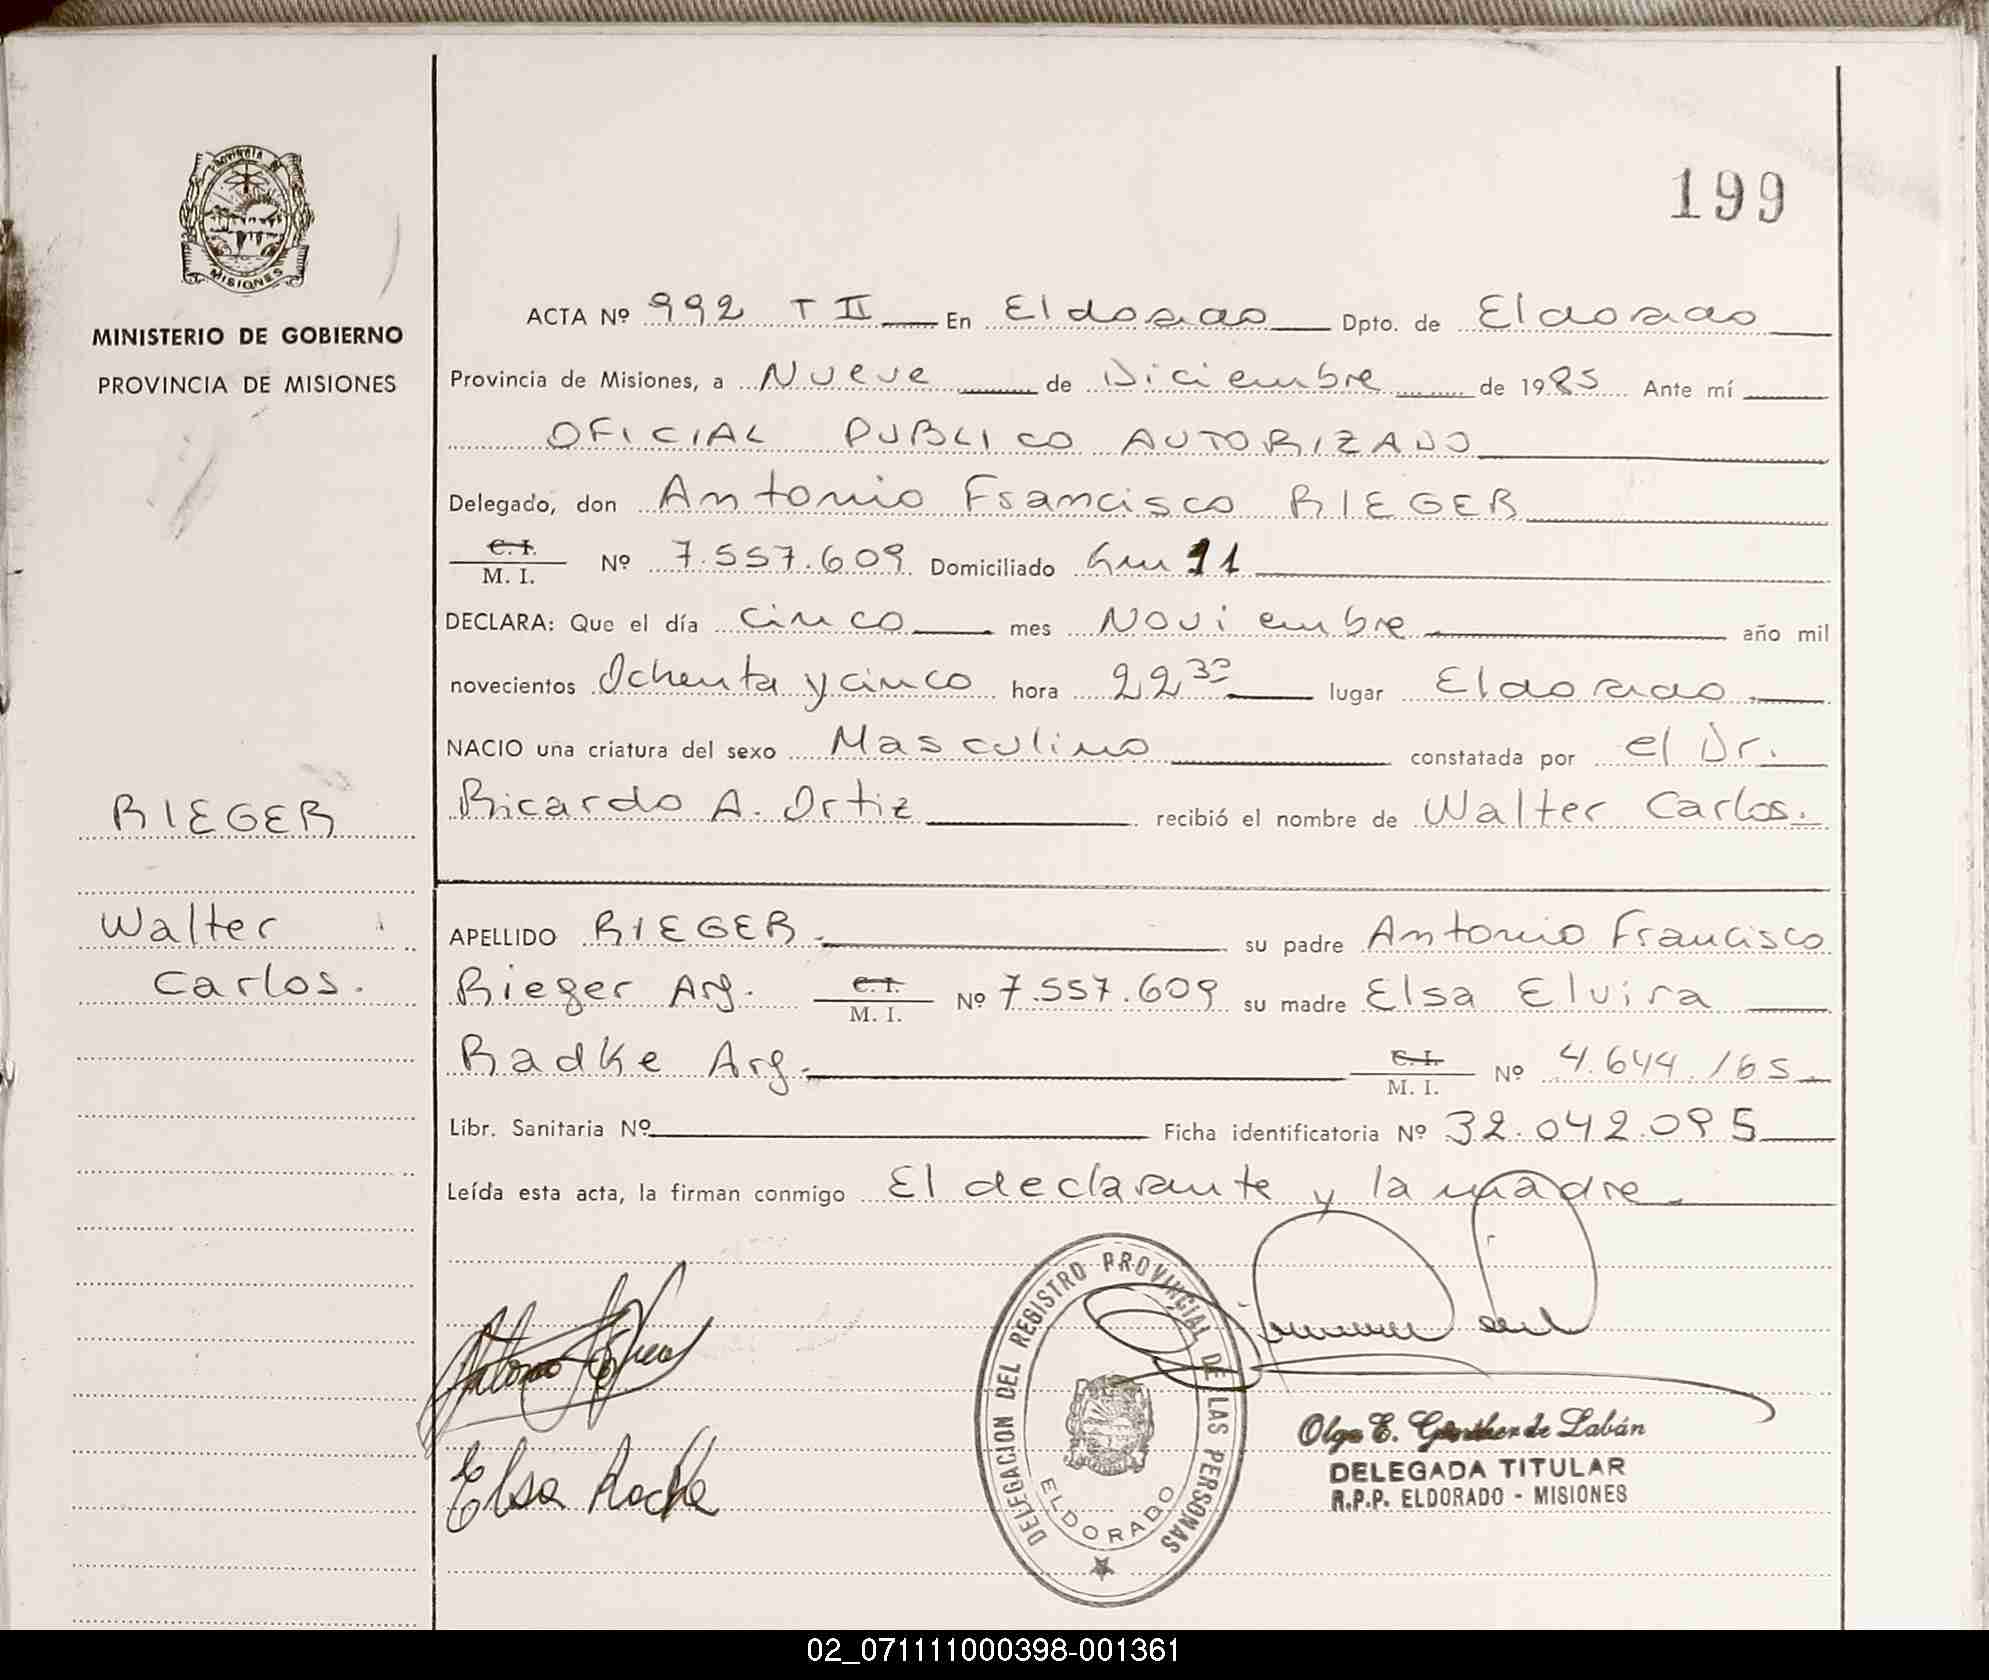 199
PROVINCIA DE
MISIONES
MINISTERIO DE GOBIERNO
PROVINCIA DE MISIONES
RIEGER
Walter
Carlos.
ACTA Nº 992 T II En Eldorado Dpto. de Eldorado
Provincia de Misiones, a Nueve de Diciembre de 1985 Ante mí
OFICIAL PUBLICO AUTORIZADO
Delegado, don Antonio Francisco RIEGER
C. I.
M. I. Nº 7.557.609 Domiciliado Km 11
DECLARA: Que el día cinco mes Noviembre año mil
novecientos Ochenta y cinco hora 22 30 lugar Eldorado.
NACIO una criatura del sexo Masculino constatada por el Dr.
Ricardo A. Ortiz recibió el nombre de Walter Carlos.
APELLIDO RIEGER. su padre Antonio Francisco
Rieger Arg. C. I. M. I. Nº 7.557.609 su madre Elsa Elvira
Radke Arg. C. I. M. I. Nº 4.644.165.
Libr. Sanitaria Nº Ficha identificatoria Nº 32.042.095
Leída esta acta, la firman conmigo El declarante y la madre.
DELEGACION DEL REGISTRO PROVINCIAL DE LAS PERSONAS
ELDORADO
Antonio
Elsa
Olga E. de Labán
DELEGADA TITULAR
R.P.P. ELDORADO - MISIONES
02_071111000398-001361